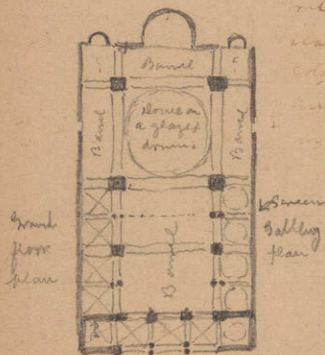 Barrel
Barrel
Dome on
a glazed
drum.
Barrel
Ground
floor
plan
Screen
Gallery
plan
Barrel